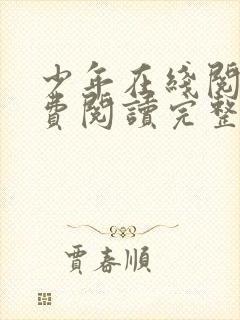 少年在綫閱
費閱讀完整
賈春順